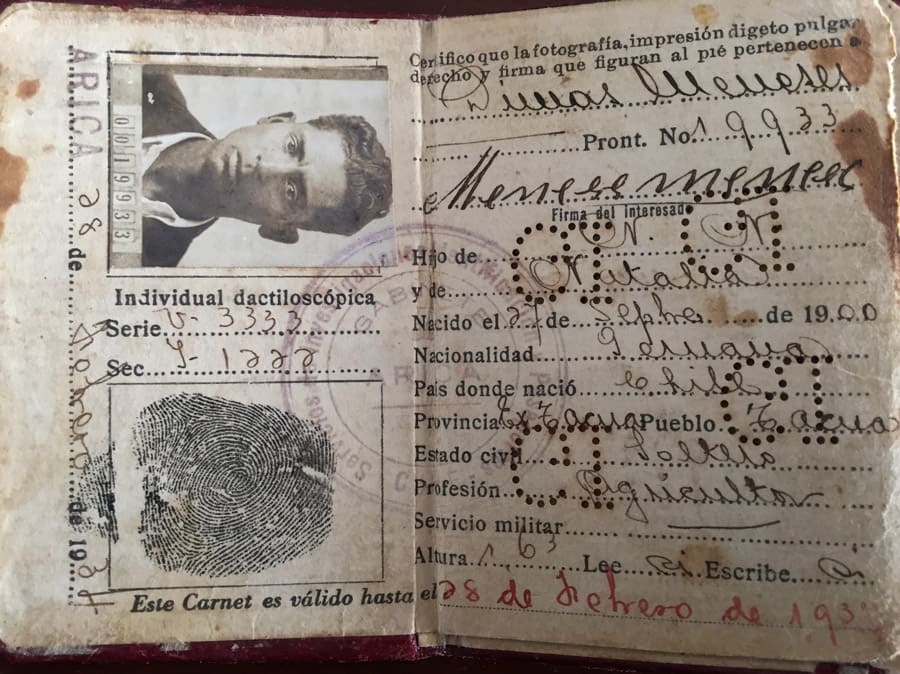 ARICA 28 de Febrero de 19
0019933
Individual dactiloscópica
Serie V-3333
Sec I-1222
Este Carnet es válido hasta el 28 de Febrero de 193
Certifico que la fotografía, impresión digeto pulgar
derecho y firma que figuran al pié pertenecen a
Dimas Meneses
Pront. No 19933
Meneses meneses
Firma del Interesado
Hijo de N. N
y de Natalia
Nacido el de Sepbre de 1900
Nacionalidad Peruana
País donde nació Chile
Provincia Ex Tacna Pueblo Tacna
Estado civil Soltero
Profesión Agricultor
Servicio militar
Altura 1.63 Lee si Escribe
GABINETE
ARICA